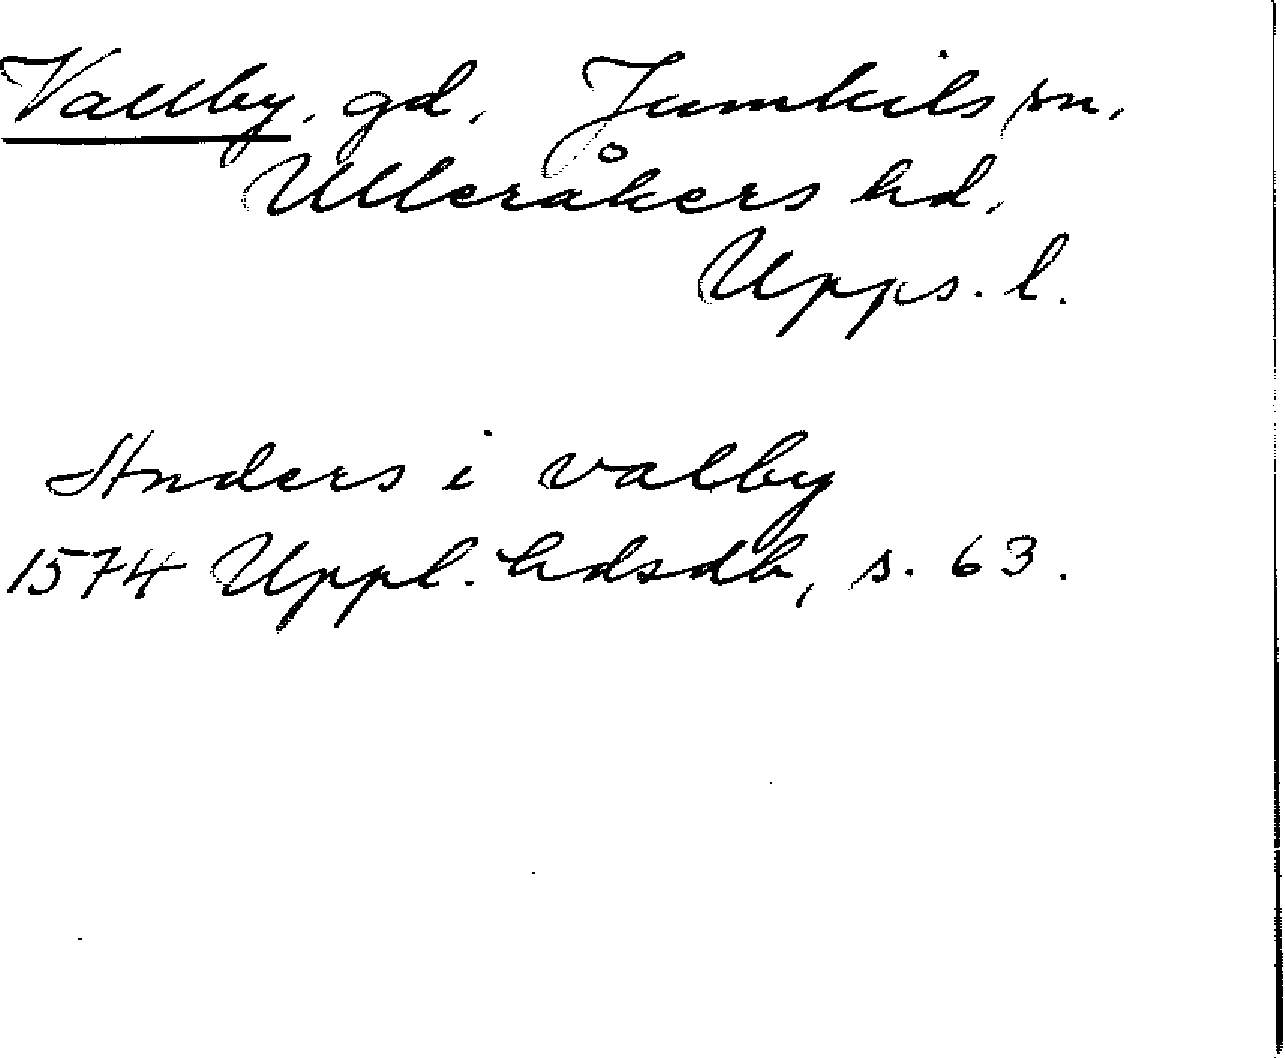 Vallby, gd, Jumkils sn,
Ulleråkers hd,
Upps. l.
Anders i valby
1574 Uppl. hdsdb, s. 63.